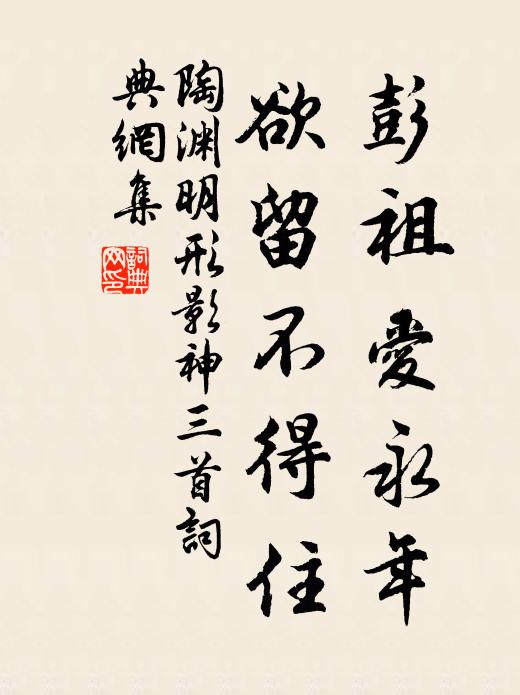 彭祖愛永年
欲留不得住
陶渊明形影神三首詞
典網集
詞典
网印